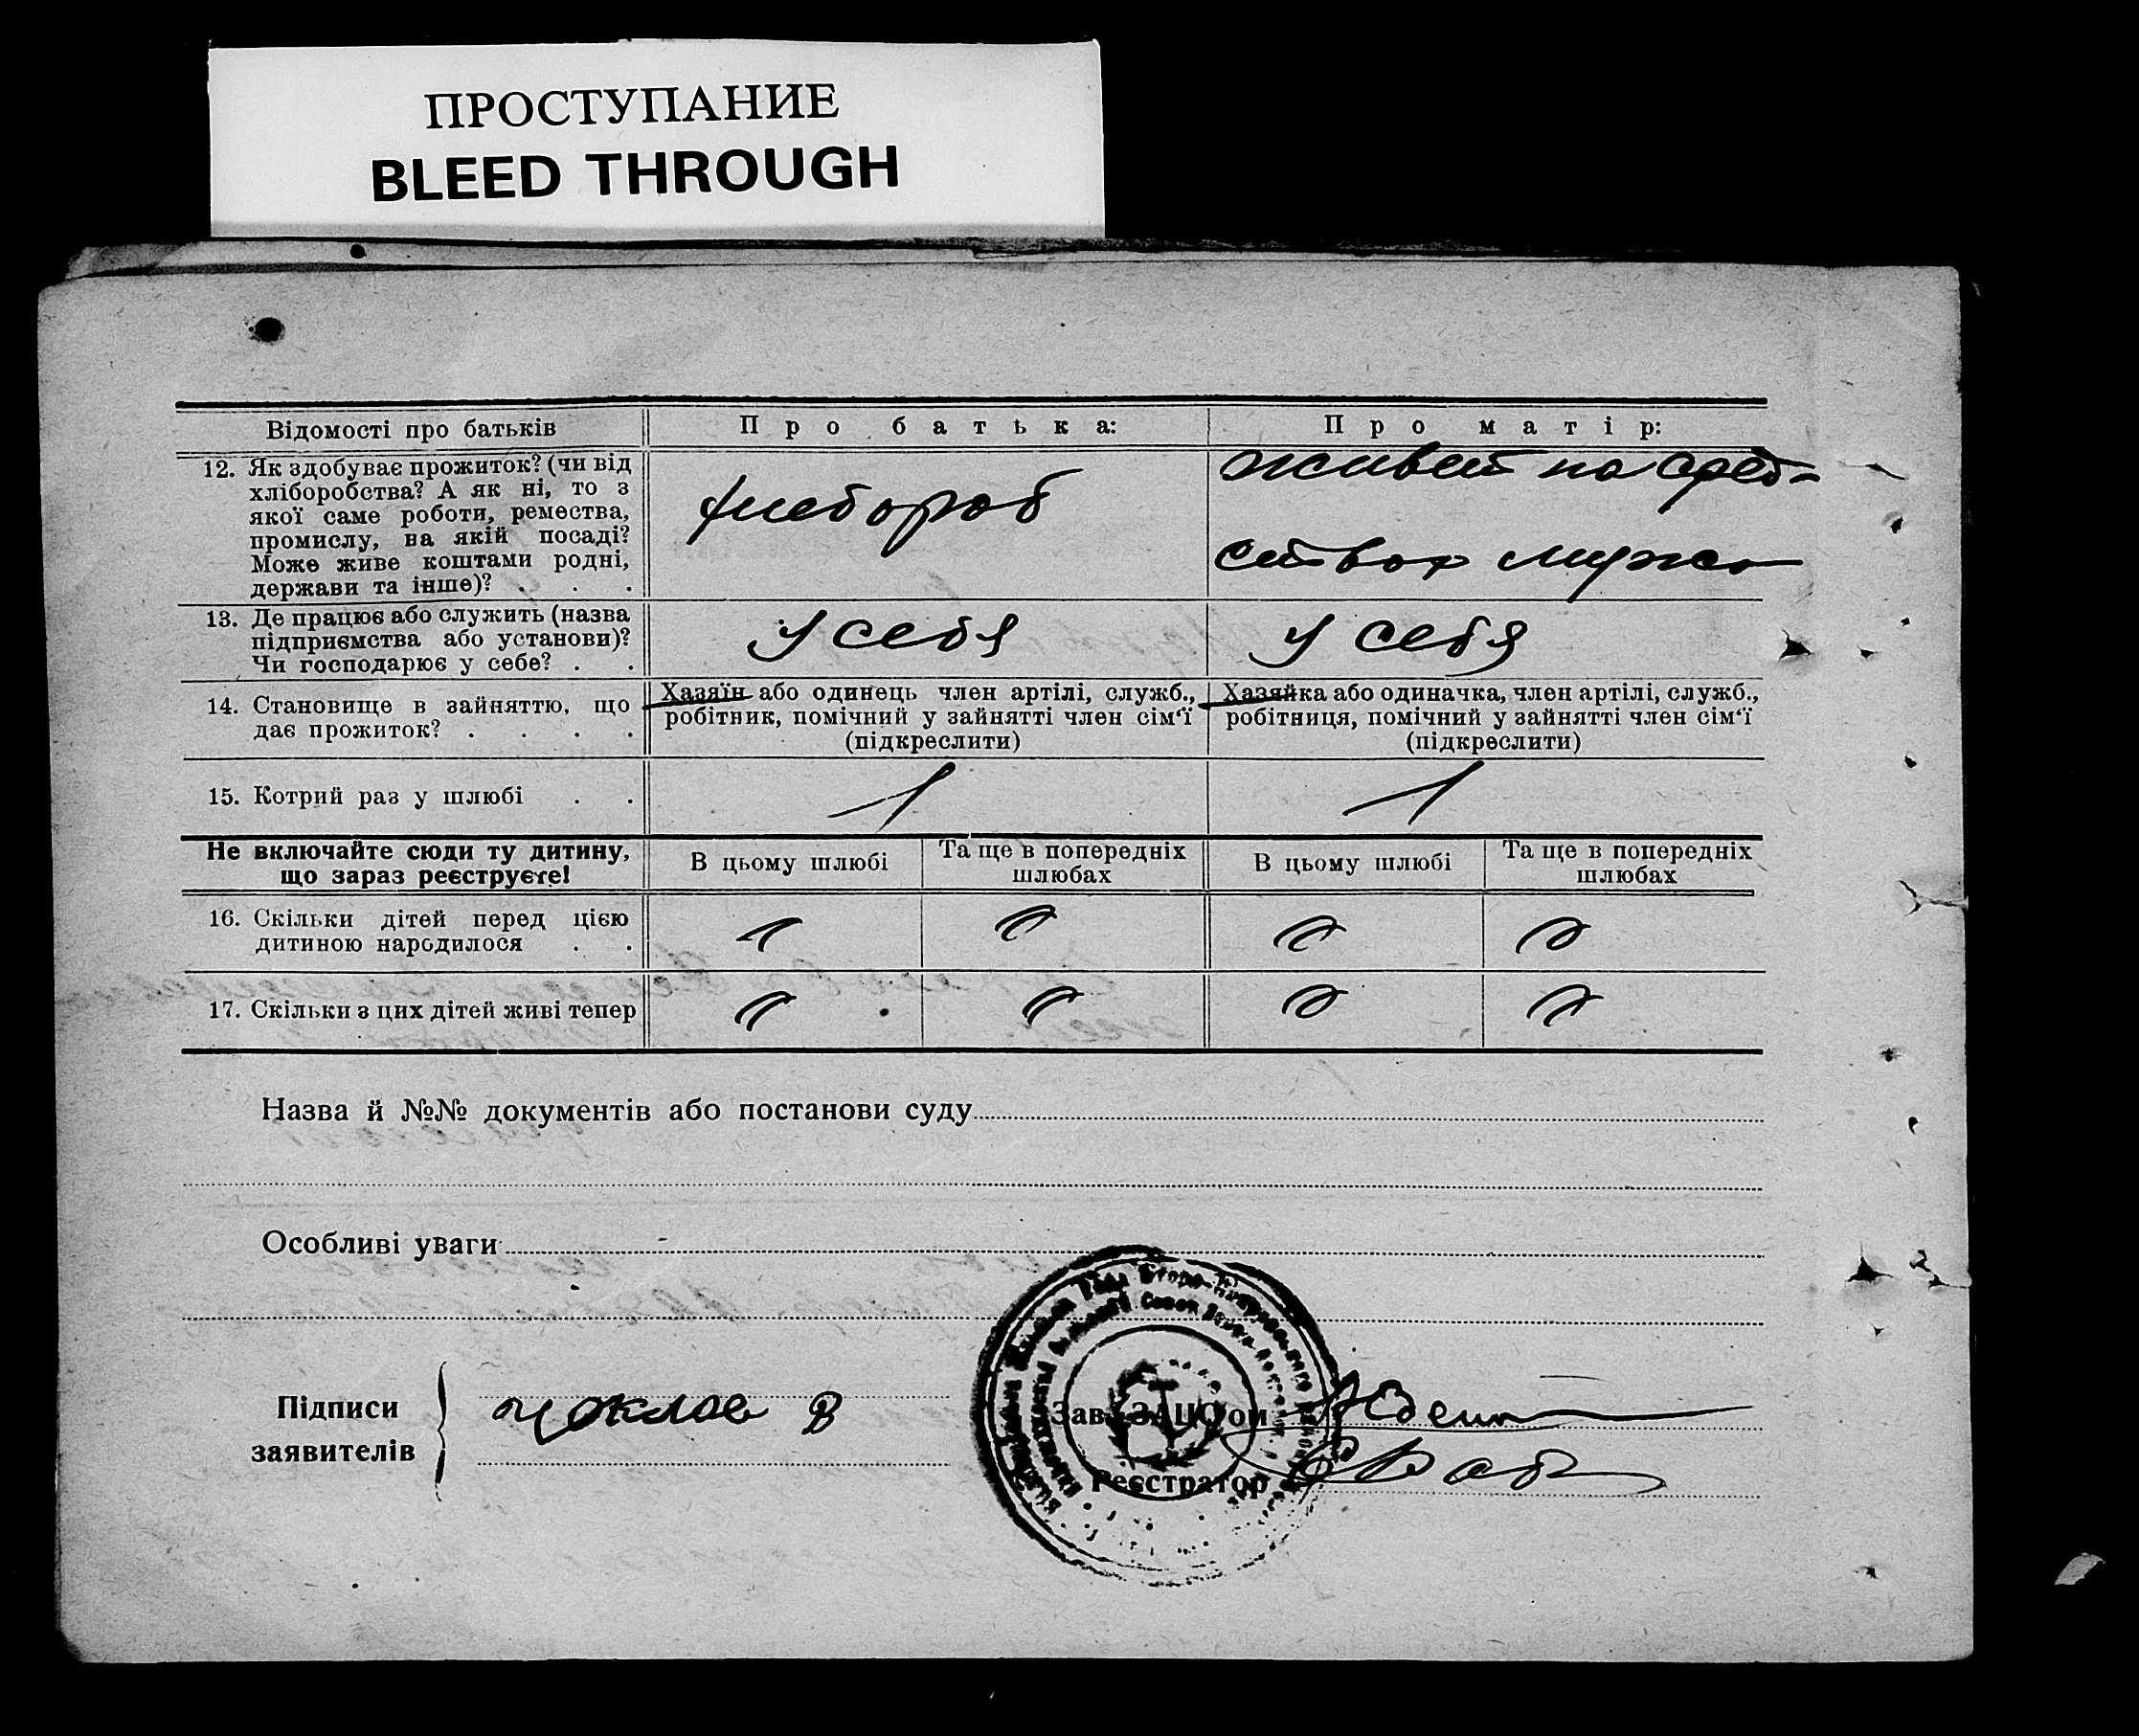 ПРОСТУПАНИЕ
BLEED THROUGH
Відомості про батьків
Про батька:
Про матір:
12. Як здобуває прожиток? (чи від
хліборобства? А як ні, то з
якої саме роботи, ремества,
промислу, на якій посаді?
Може живе коштами родні,
держави та інше)? . . .
хлебороб
живет на сред-
ствах мужа
13. Де працює або служить (назва
підприємства або установи)?
Чи господарює у себе? . .
у себя
у себя
14. Становище в зайняттю, що
дає прожиток? . . . .
Хазяїн або одинець член артілі, служб.,
робітник, помічний у зайнятті член сім'ї
(підкреслити)
Хазяйка або одиначка, член артілі, служб.,
робітниця, помічний у зайнятті член сім'ї
(підкреслити)
15. Котрий раз у шлюбі . .
1
1
Не включайте сюди ту дитину,
що зараз реєструєте!
В цьому шлюбі
Та ще в попередніх
шлюбах
В цьому шлюбі
Та ще в попередніх
шлюбах
16. Скільки дітей перед цією
дитиною народилося . .
17. Скільки з цих дітей живі тепер
Назва й №№ документів або постанови суду
Особливі уваги
Підписи
заявителів
Чоклав В
Зав. ЗАЦС'ом
Реєстратор